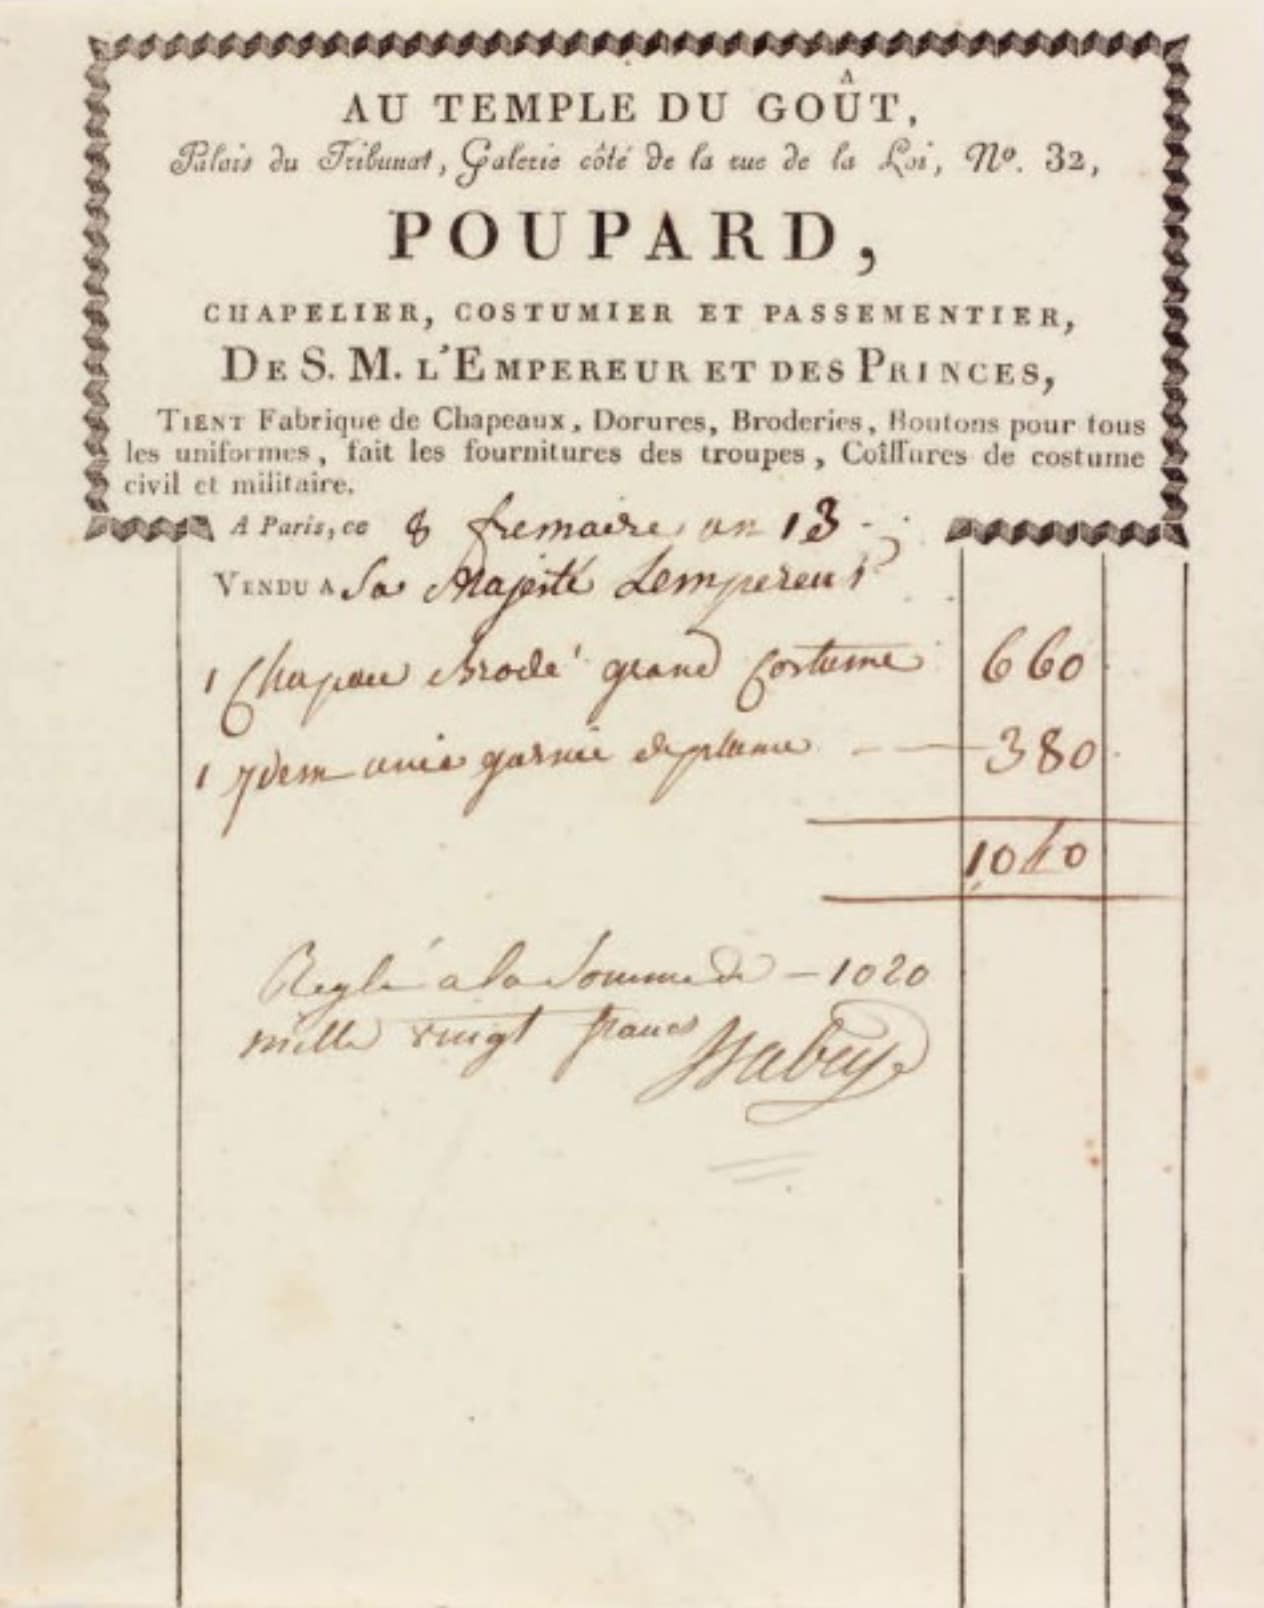 AU TEMPLE DU GOÛT,
Palais du Tribunat, Galerie côté de la rue de la Loi, Nº. 32,
POUPARD,
CHAPELIER, COSTUMIER ET PASSEMENTIER,
DE S. M. L'EMPEREUR ET DES PRINCES,
TIENT Fabrique de Chapeaux, Dorures, Broderies, Boutons pour tous
les uniformes, fait les fournitures des troupes, Coiffures de costume
civil et militaire.
A Paris, ce 8 fremaire an 13
VENDU A Sa Majesté Lempereur
1 Chapau Brodé grand Costume 660
1 ydem unie garnie de plume 380
1040
Reglé a la Somme de - 1020
mille vingt francs